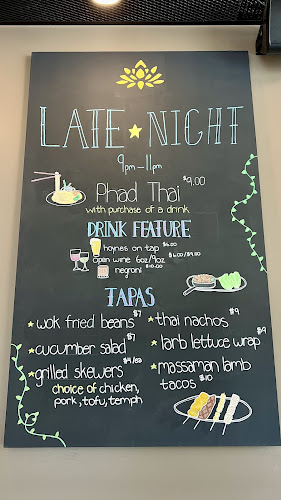 LATE NIGHT
9pm-11pm
Phad Thai $9.00
with purchase of a drink
DRINK FEATURE
hoynes on tap $6.00
open wine 6oz/9oz $6.00/$9.00
negroni $10.00
TAPAS
wok fried beans $7
cucumber salad $7
grilled skewers $4/ea
choice of chicken,
pork, tofu, temph
thai nachos $9
larb lettuce wrap $9
massaman lamb
tacos $10